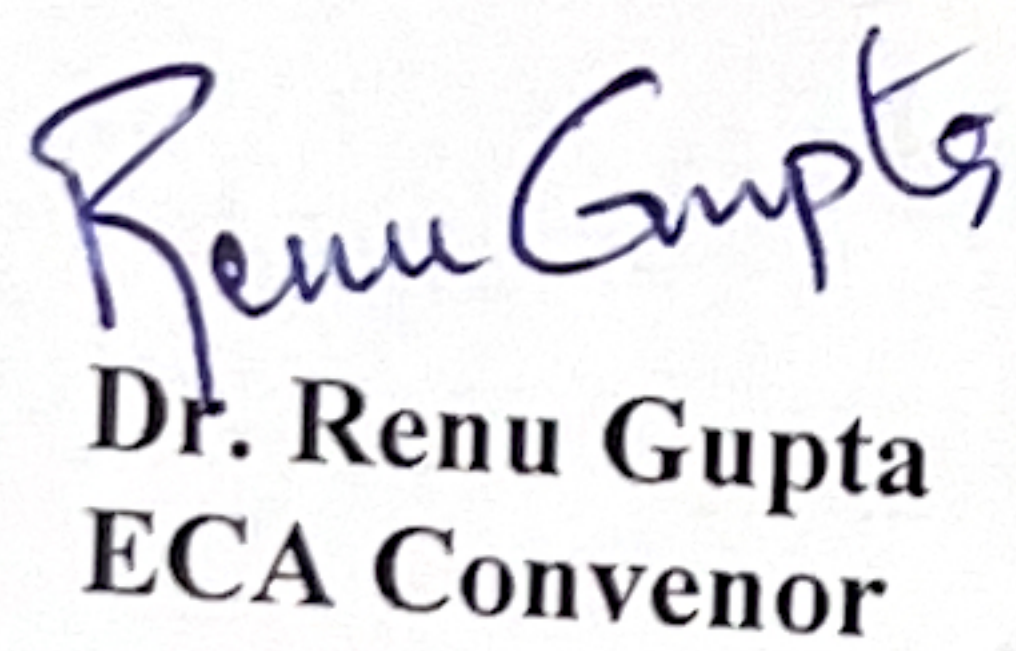 Renu Gupta
Dr. Renu Gupta
ECA Convenor